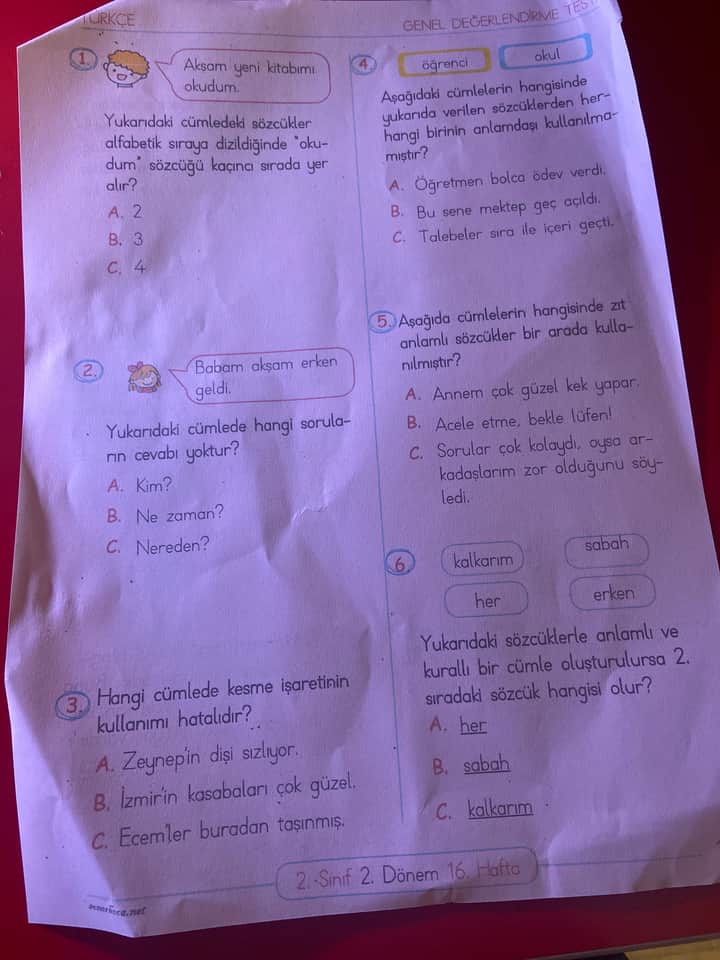 TÜRKÇE
GENEL DEĞERLENDİRME TEST
1.
Akşam yeni kitabımı
okudum.
Yukarıdaki cümledeki sözcükler
alfabetik sıraya dizildiğinde "oku-
dum" sözcüğü kaçıncı sırada yer
alır?
A. 2
B. 3
C. 4
2.
Babam akşam erken
geldi.
Yukarıdaki cümlede hangi sorula-
rın cevabı yoktur?
A. Kim?
B. Ne zaman?
C. Nereden?
3. Hangi cümlede kesme işaretinin
kullanımı hatalıdır?
A. Zeynep'in dişi sızlıyor.
B. İzmir'in kasabaları çok güzel.
C. Ecem'ler buradan taşınmış.
4.
öğrenci
okul
Aşağıdaki cümlelerin hangisinde
yukarıda verilen sözcüklerden her-
hangi birinin anlamdaşı kullanılma-
mıştır?
A. Öğretmen bolca ödev verdi.
B. Bu sene mektep geç açıldı.
C. Talebeler sıra ile içeri geçti.
5. Aşağıda cümlelerin hangisinde zıt
anlamlı sözcükler bir arada kulla-
nılmıştır?
A. Annem çok güzel kek yapar.
B. Acele etme, bekle lüfen!
C. Sorular çok kolaydı, oysa ar-
kadaşlarım zor olduğunu söy-
ledi.
6.
kalkarım
sabah
her
erken
Yukarıdaki sözcüklerle anlamlı ve
kurallı bir cümle oluşturulursa 2.
sıradaki sözcük hangisi olur?
A. her
B. sabah
C. kalkarım
2. Sınıf 2. Dönem 16. Hafta